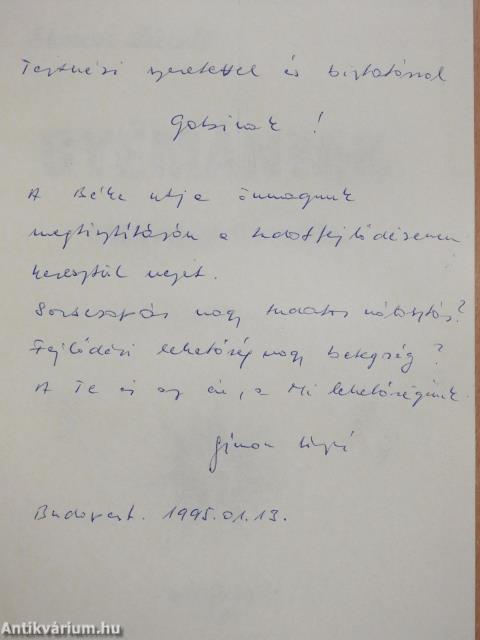 Testvéri szeretettel és biztatással
Gabinak!
A Béke útja önmagunk
megtisztításán a tudatfejlődésemen
keresztül vezet.
Sorscsapás vagy tudatos választás?
Fejlődési lehetőség vagy betegség?
A Te és az én, a Mi lehetőségünk
Simon
Budapest. 1995.01.13.
Antikvárium.hu